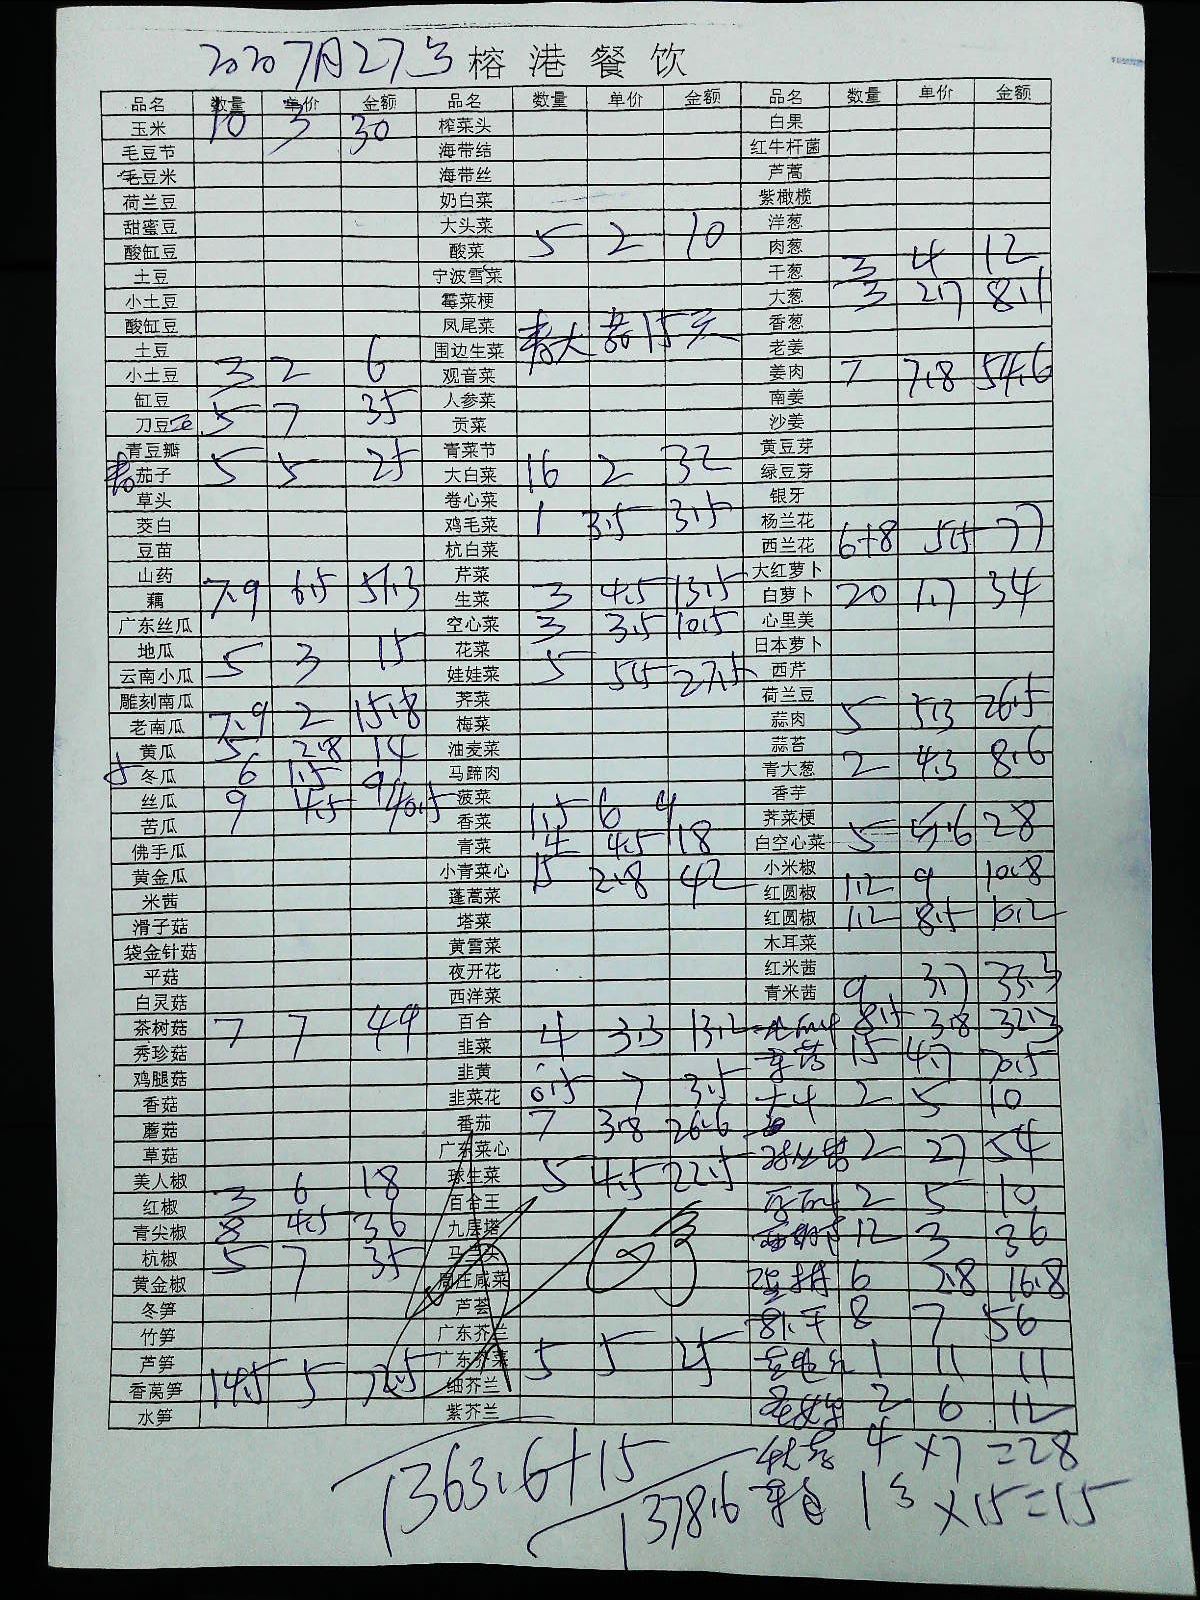 2020 7月27号 榕港餐饮
品名 数量 单价 金额 品名 数量 单价 金额 品名 数量 单价 金额
玉米 10 3 30 榨菜头 白果
毛豆节 海带结 红牛杆菌
毛豆米 海带丝 芦蒿
荷兰豆 奶白菜 紫橄榄
甜蜜豆 大头菜 洋葱
酸缸豆 酸菜 5 2 10 肉葱
土豆 宁波雪菜 干葱 3 4 12
小土豆 霉菜梗 大葱 3 2.7 8.1
酸缸豆 凤尾菜 香葱
土豆 围边生菜 15 老姜
小土豆 3 2 6 观音菜 姜肉 7 7.8 54.6
缸豆 人参菜 南姜
刀豆 5 7 35 贡菜 沙姜
青豆瓣 青菜节 黄豆芽
茄子 5 5 25 大白菜 16 2 32 绿豆芽
草头 卷心菜 银牙
茭白 鸡毛菜 1 3.5 3.5 杨兰花
豆苗 杭白菜 西兰花 6+8 5.5 77
山药 芹菜 大红萝卜
藕 7.9 6.5 51.3 生菜 3 4.5 13.5 白萝卜 20 1.7 34
广东丝瓜 空心菜 3 3.5 10.5 心里美
地瓜 5 3 15 花菜 日本萝卜
云南小瓜 娃娃菜 5 5.5 27.5 西芹
雕刻南瓜 荠菜 荷兰豆
老南瓜 7.9 2 15.8 梅菜 蒜肉 5 5.3 26.5
黄瓜 5 2.8 14 油麦菜 蒜苔
冬瓜 6 1.5 9 马蹄肉 青大葱 2 4.3 8.6
丝瓜 9 4.5 40.5 菠菜 香芋
苦瓜 香菜 1.5 6 9 荠菜梗
佛手瓜 青菜 4 4.5 18 白空心菜 5 5.6 28
黄金瓜 小青菜心 15 2.8 42 小米椒
米茜 蓬蒿菜 红圆椒 1.2 9 10.8
滑子菇 塔菜 红圆椒 1.2 8.5 10.2
袋金针菇 黄雪菜 木耳菜
平菇 夜开花 红米茜
白灵菇 西洋菜 青米茜 9 3.7 33.3
茶树菇 7 7 49 百合 4 3.3 13.2 8.5 3.8 32.3
秀珍菇 韭菜 15 4.7 70.5
鸡腿菇 韭黄
香菇 韭菜花 0.5 7 3.5 2 5 10
蘑菇 番茄 7 3.8 26.6
草菇 广东菜心 2 27 54
美人椒 球生菜 5 4.5 22.5
红椒 3 6 18 百合王 2 5 10
青尖椒 8 4.5 36 九层塔 12 3 36
杭椒 5 7 35 马兰头
黄金椒 周庄咸菜 6 2.8 16.8
冬笋 芦荟 8 7 56
竹笋 广东芥兰
芦笋 广东芥菜 5 5 25 1 11 11
香莴笋 14.5 5 72.5 细芥兰
水笋 紫芥兰 2 6 12
4 ×7 =28
1363.6+15
1378.6 1 ×15=15